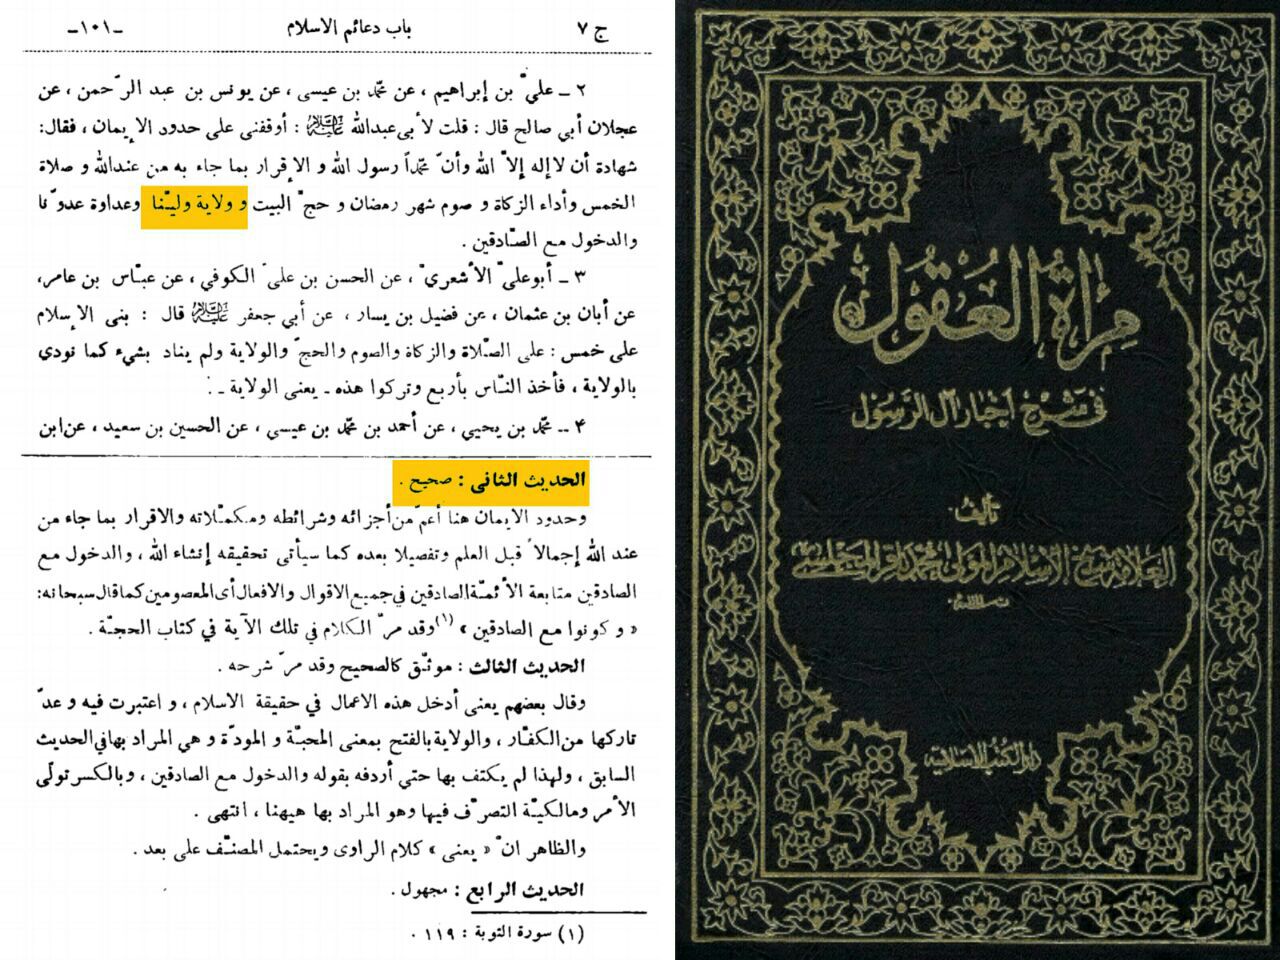 ج ۷ باب دعائم الاسلام -۱۰۱-
۲ ـ عليّ بن إبراهيم ، عن محمّد بن عيسى ، عن يونس بن عبد الرّحمن ، عن
عجلان أبي صالح قال : قلت لأبي عبدالله عليه السلام : أوقفني على حدود الإيمان ، فقال:
شهادة أن لا إله إلاّ الله وأنّ محمّداً رسول الله و الإقرار بما جاء به من عندالله و صلاة
الخمس وأداء الزكاة و صوم شهر رمضان و حجّ البيت و ولاية وليّنا وعداوة عدوّنا
والدخول مع الصّادقين .
۳ ـ أبوعليّ الأشعريّ ، عن الحسن بن عليّ الكوفي ، عن عبّاس بن عامر،
عن أبان بن عثمان ، عن فضيل بن يسار ، عن أبي جعفر عليه السلام قال : بنى الإسلام
على خمس : على الصّلاة والزكاة والصوم والحجّ والولاية ولم يناد بشيء كما نودي
بالولاية ، فأخذ النّاس بأربع وتركوا هذه ـ يعنى الولاية ـ .
۴ ــ محمّد بن يحيى ، عن أحمد بن محمّد بن عيسى ، عن الحسين بن سعيد ، عن ابن
الحديث الثانى : صحيح .
وحدود الايمان هنا أعمّ من أجزائه وشرائطه ومكمّلاته والاقرار بما جاء من
عند الله إجمالاً قبل العلم وتفصيلا بعده كما سيأتى تحقيقه إنشاء الله ، والدخول مع
الصادقين متابعة الأئمّة الصادقين في جميع الاقوال والافعال أى المعصومين كما قال سبحانه:
« و كونوا مع الصادقين » (۱) وقد مرّ الكلام في تلك الآية في كتاب الحجّة .
الحديث الثالث : موثّق كالصحيح وقد مرّ شرحه .
وقال بعضهم يعنى أدخل هذه الاعمال في حقيقة الاسلام ، و اعتبرت فيه و عدّ
تاركها من الكفّار ، والولاية بالفتح بمعنى المحبّة و المودّة و هي المراد بها في الحديث
السابق ، ولهذا لم يكتف بها حتي أردفه بقوله والدخول مع الصادقين ، وبالكسر تولّى
الأمر ومالكيّة التصرّف فيها وهو المراد بها هيهنا ، انتهى .
والظاهر انّ « يعنى » كلام الراوى ويحتمل المصنّف على بعد .
الحديث الرابع : مجهول .
(۱) سورة التوبة : ۱۱۹ .
مرآة العقول
في شرح أخبار آل الرسول
تأليف
العلامة شيخ الإسلام المولى محمد باقر المجلسي
دار الكتب الإسلامية